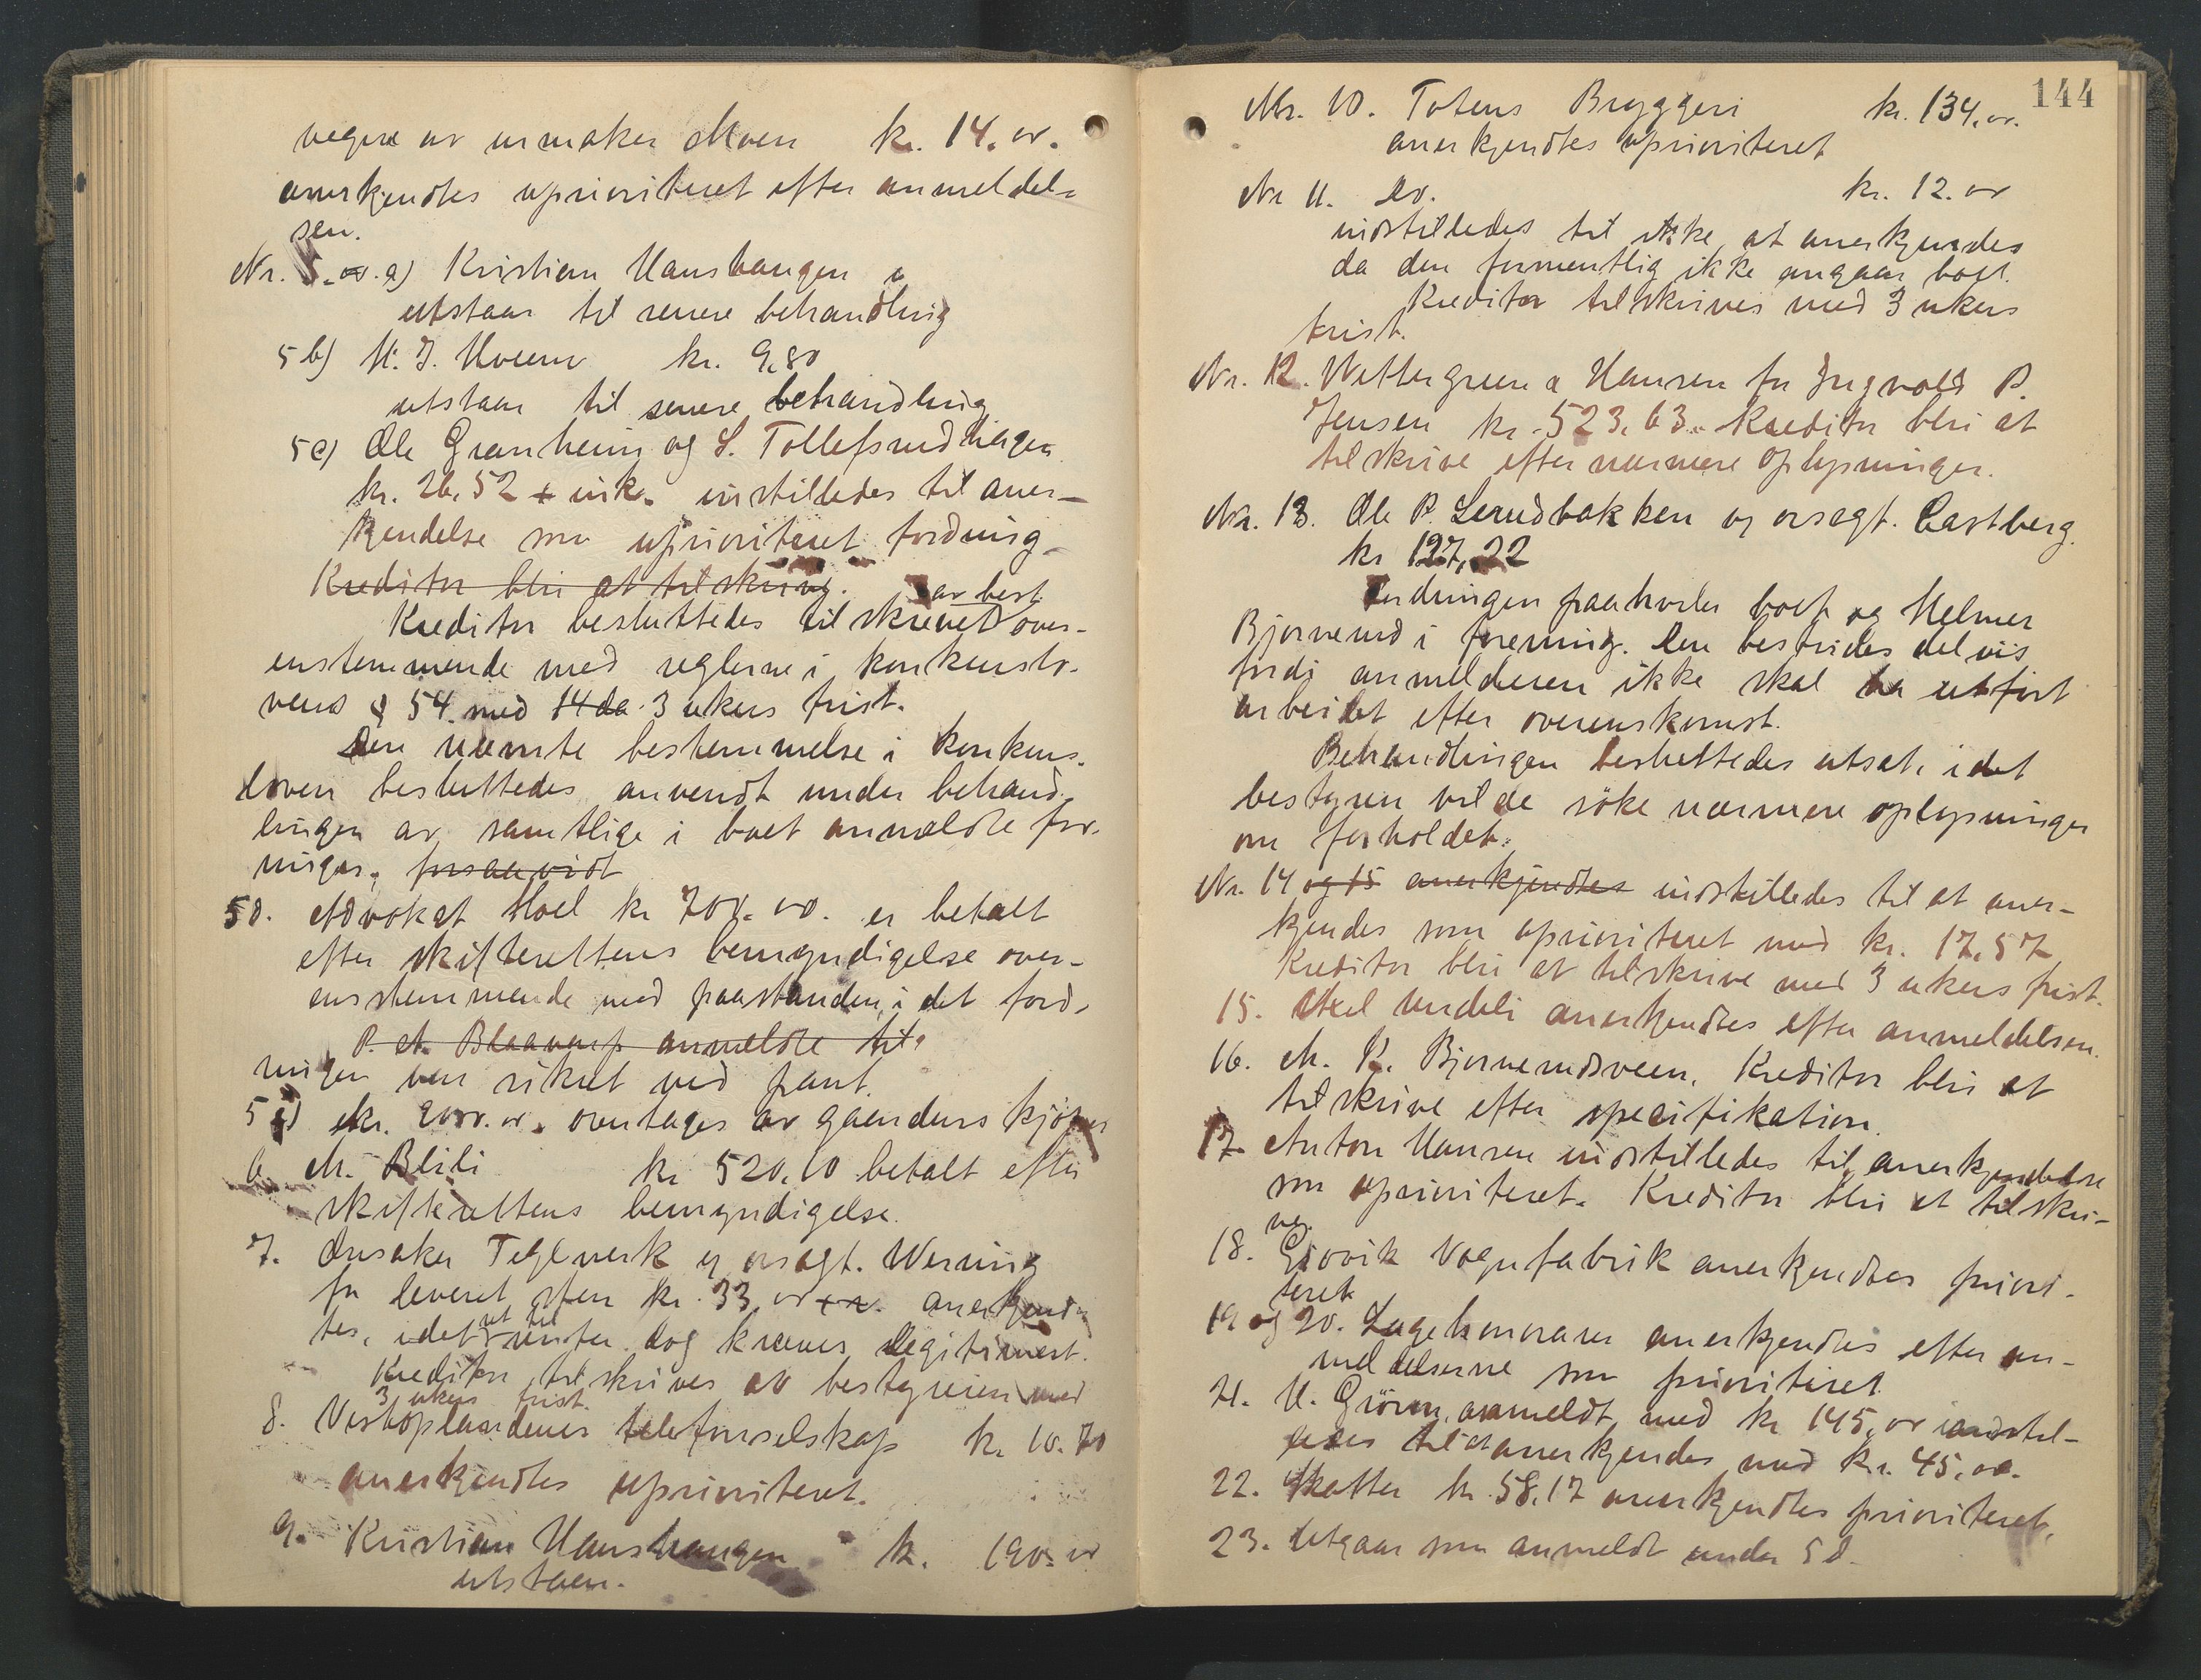 vegne av urmaker Moen kr. 14.00.
anerkjendtes uprioritert efter anmeldel-
sen.
Nr. 5. a) Kristian Haushaugen
utstaar til senere behandling
5 b) H. J. Hveem kr. 9,80
utstaar til senere behandling
5c) Ole Granheim og S. Tollefsrudhagen
kr. 26,52 + ink. instilledes til aner-
kjendelse som uprioriteret fordring
Kreditor blir at tilskrive.
av best.
Kreditor besluttedes tilskrevet over-
ensstemmende med reglerne i konkurslo-
vens § 54 med 14 da 3 ukers frist.
Den nævnte bestemmelse i konkurs-
loven besluttedes anvendt under behand-
lingen av samtlige i boet anmeldte for-
ninger, forsaavidt
5d. Advokat Hoel kr 700.00. er betalt
efter skifterettens bemyndigelse over-
ensstemmende med paastanden, i det ford-
P. A. Blaavarp anmeldte til
ningen var sikret ved pant.
5e) kr. 2000.00. overtages av gaardens kjøper
6. M. Blili kr 520,10 betalt efter
skifterettens bemyndigelse.
7. Ousaker Teglverk og orsagt. Werring
for leveret sten kr. 33,00 + r. anerkjend-
tes, idet at til renter dog kræves legitimert.
Kreditor tilskrives av bestyreren med
3 ukers frist.
8. Vestoplandenes telefonselskap kr 10.70
anerkjendtes uprioritert.
9. Kristian Haushaugen kr. 190.00
utstaar.
144
Nr. 10. Totens Bryggeri kr. 134.00.
anerkjendtes uprioriteret
Nr 11. Do. kr. 12.00
indstilledes til ikke at anerkjendes
da den formentlig ikke angaar boet.
Kreditor tilskrives med 3 ukers
frist.
Nr. 12. Wettergreen & Hansen for Ingvald P.
Jensen kr. 523,63. Kreditor blir at
tilskrive efter nærmere oplysninger.
Nr. 13. Ole P. Lerudbakken og orsagt. Castberg.
kr 127,22
Fordringen paahviler boet og Helmer
Bjørnerud i forening. Den bestrides delvis
fordi anmelderen ikke skal ha utført
arbeidet efter overenskomst.
Behandlingen besluttedes utsat, idet
bestyren vilde söke nærmere oplysninger
om forholdet.
Nr. 14 og 15 anerkjendtes indstilledes til at aner-
kjendes som uprioriteret med kr. 17,57
Kreditor blir at tilskrive med 3 ukers frist.
15. Axel Undeli anerkjendtes efter anmeldelsen.
16. M. K. Bjørnerudsveen. Kreditor blir at
tilskrive efter specifikation.
17. Anton Hansen indstilledes til anerkjendelse
som uprioriteret. Kreditor blir at tilskri-
ve.
18. Gjøvik Vognfabrik anerkjendtes priori-
teret
19 og 20. Lægehonorarer anerkjendtes efter an-
meldelserne som prioriteret
21. H. Grönn, anmeldt med kr 145,00 indstil-
ledes til at anerkjendes med kr. 45,00.
22. Skatter kr. 58,17 anerkjendtes prioriteret.
23. Utgaar som anmeldt under 5d.